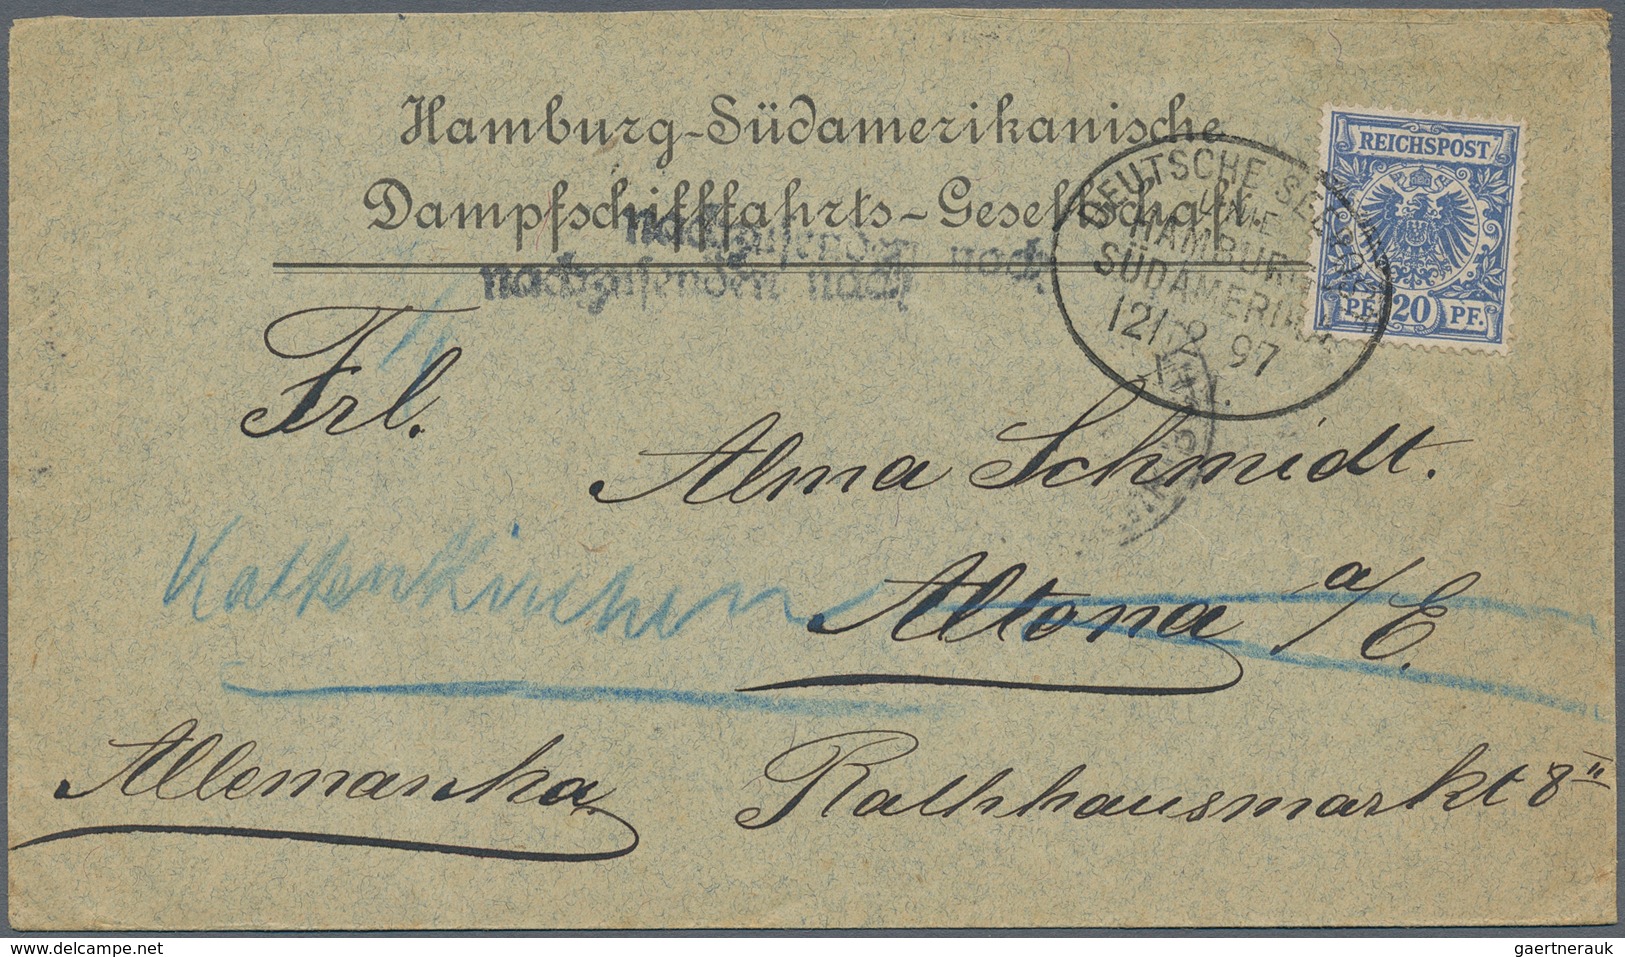 Hamburg-Südamerikanische
Dampfschifffahrts-Gesellschaft.
nachzusenden nach
nachzusenden nach
REICHSPOST
PF. 20 PF.
DEUTSCHE SEEPOST
LINIE
HAMBURG
SÜDAMERIKA
12/2 97
Frl.
Alma Schmidt.
Kaltenkirchen
Altona a/E.
Allemanha
Rathhausmarkt 8 II
delcampe.net
gaertnerauk